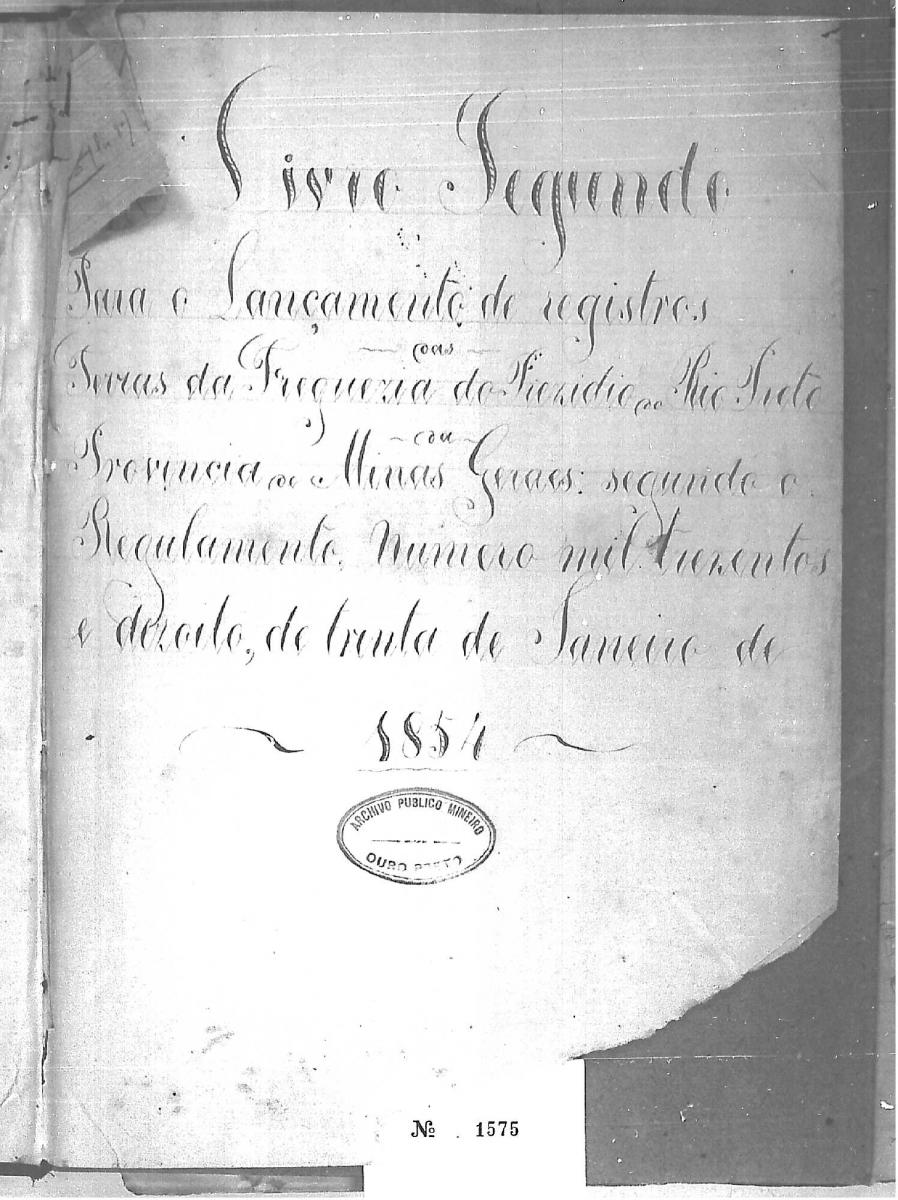 Livro Segundo
Para o Lançamento de registros
das
Terras da Freguezia do Prezidio do Rio Preto
da
Provincia de Minas Geraes: segundo o
Regulamento, Numero mil trezentos
e dezoito, de trinta de Janeiro de
1854
ARCHIVO PUBLICO MINEIRO
OURO PRETO
Nº 1575